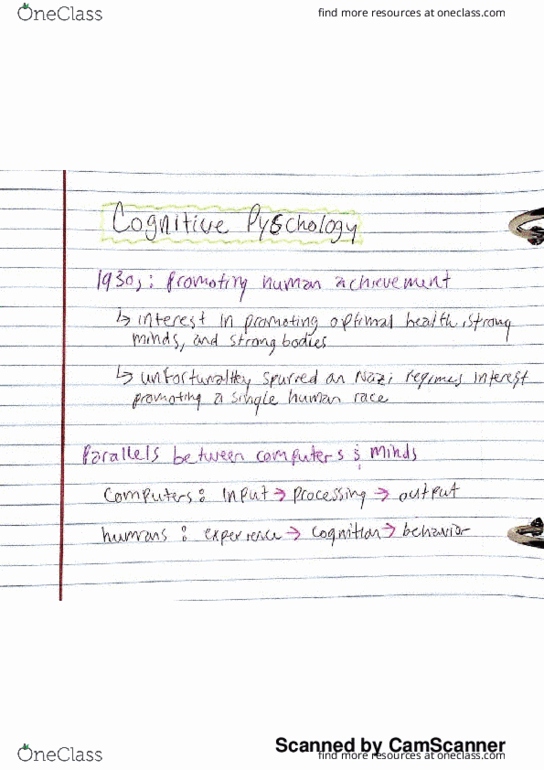 OneClass
find more resources at oneclass.com
Cognitive Pyschology
1930s: promoting human achievement
↳ interest in promoting optimal health, strong
minds, and strong bodies
↳ unfortunatley spurred on Nazi regimes interest
promoting a single human race
Parallels between computers & minds
Computers: Input → processing → output
humans: experience → cognition → behavior
Scanned by CamScanner
OneClass
find more resources at oneclass.com